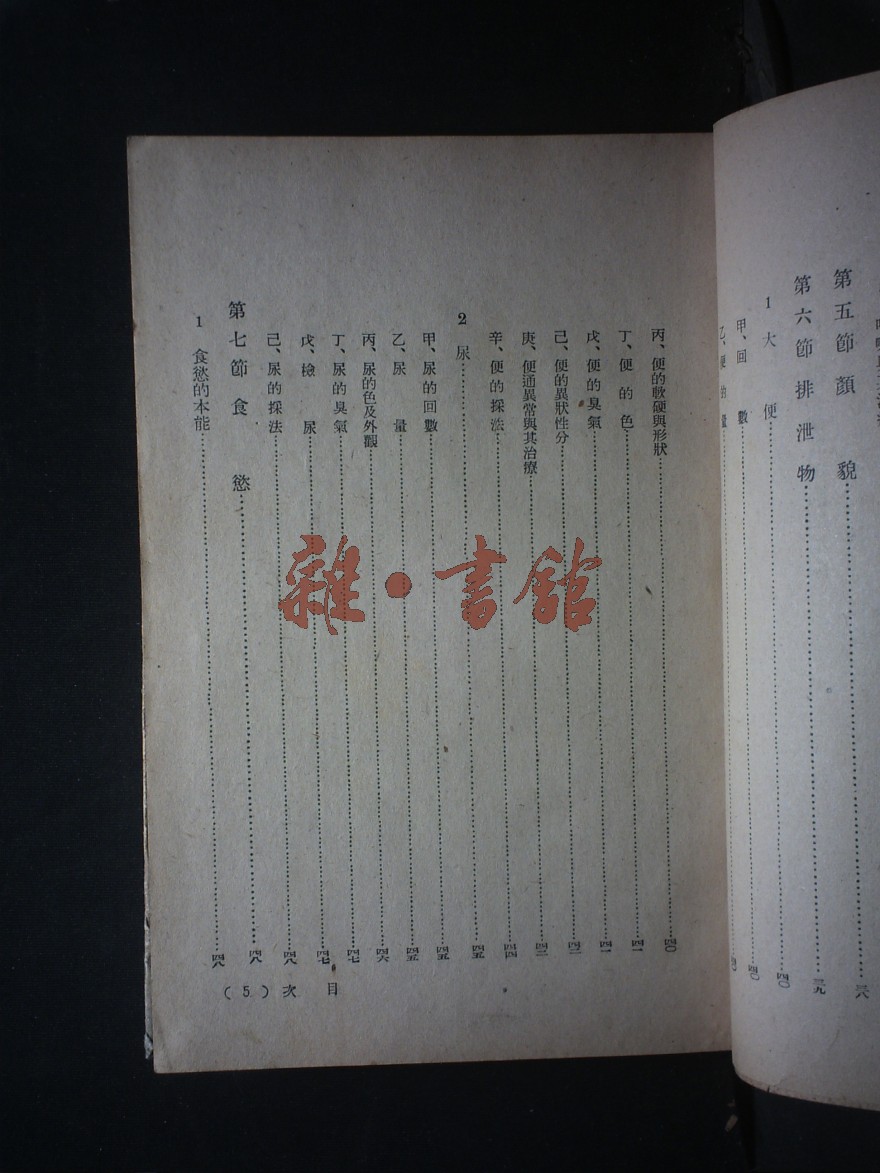 第五節 顏貌……三八
第六節 排泄物……三九
1 大便……四〇
甲、回數……四〇
乙、便的量
丙、便的軟硬與形狀……四〇
丁、便的色……四一
戊、便的臭氣……四一
己、便的異狀性分……四二
庚、便通異常與其治療
辛、便的採法……四四
2 尿……四五
甲、尿的回數……四五
乙、尿量……四五
丙、尿的色及外觀……四六
丁、尿的臭氣……四七
戊、檢尿……四七
己、尿的採法……四八
第七節 食慾……四八
1 食慾的本能……四八
目次 (5)
雜·書館